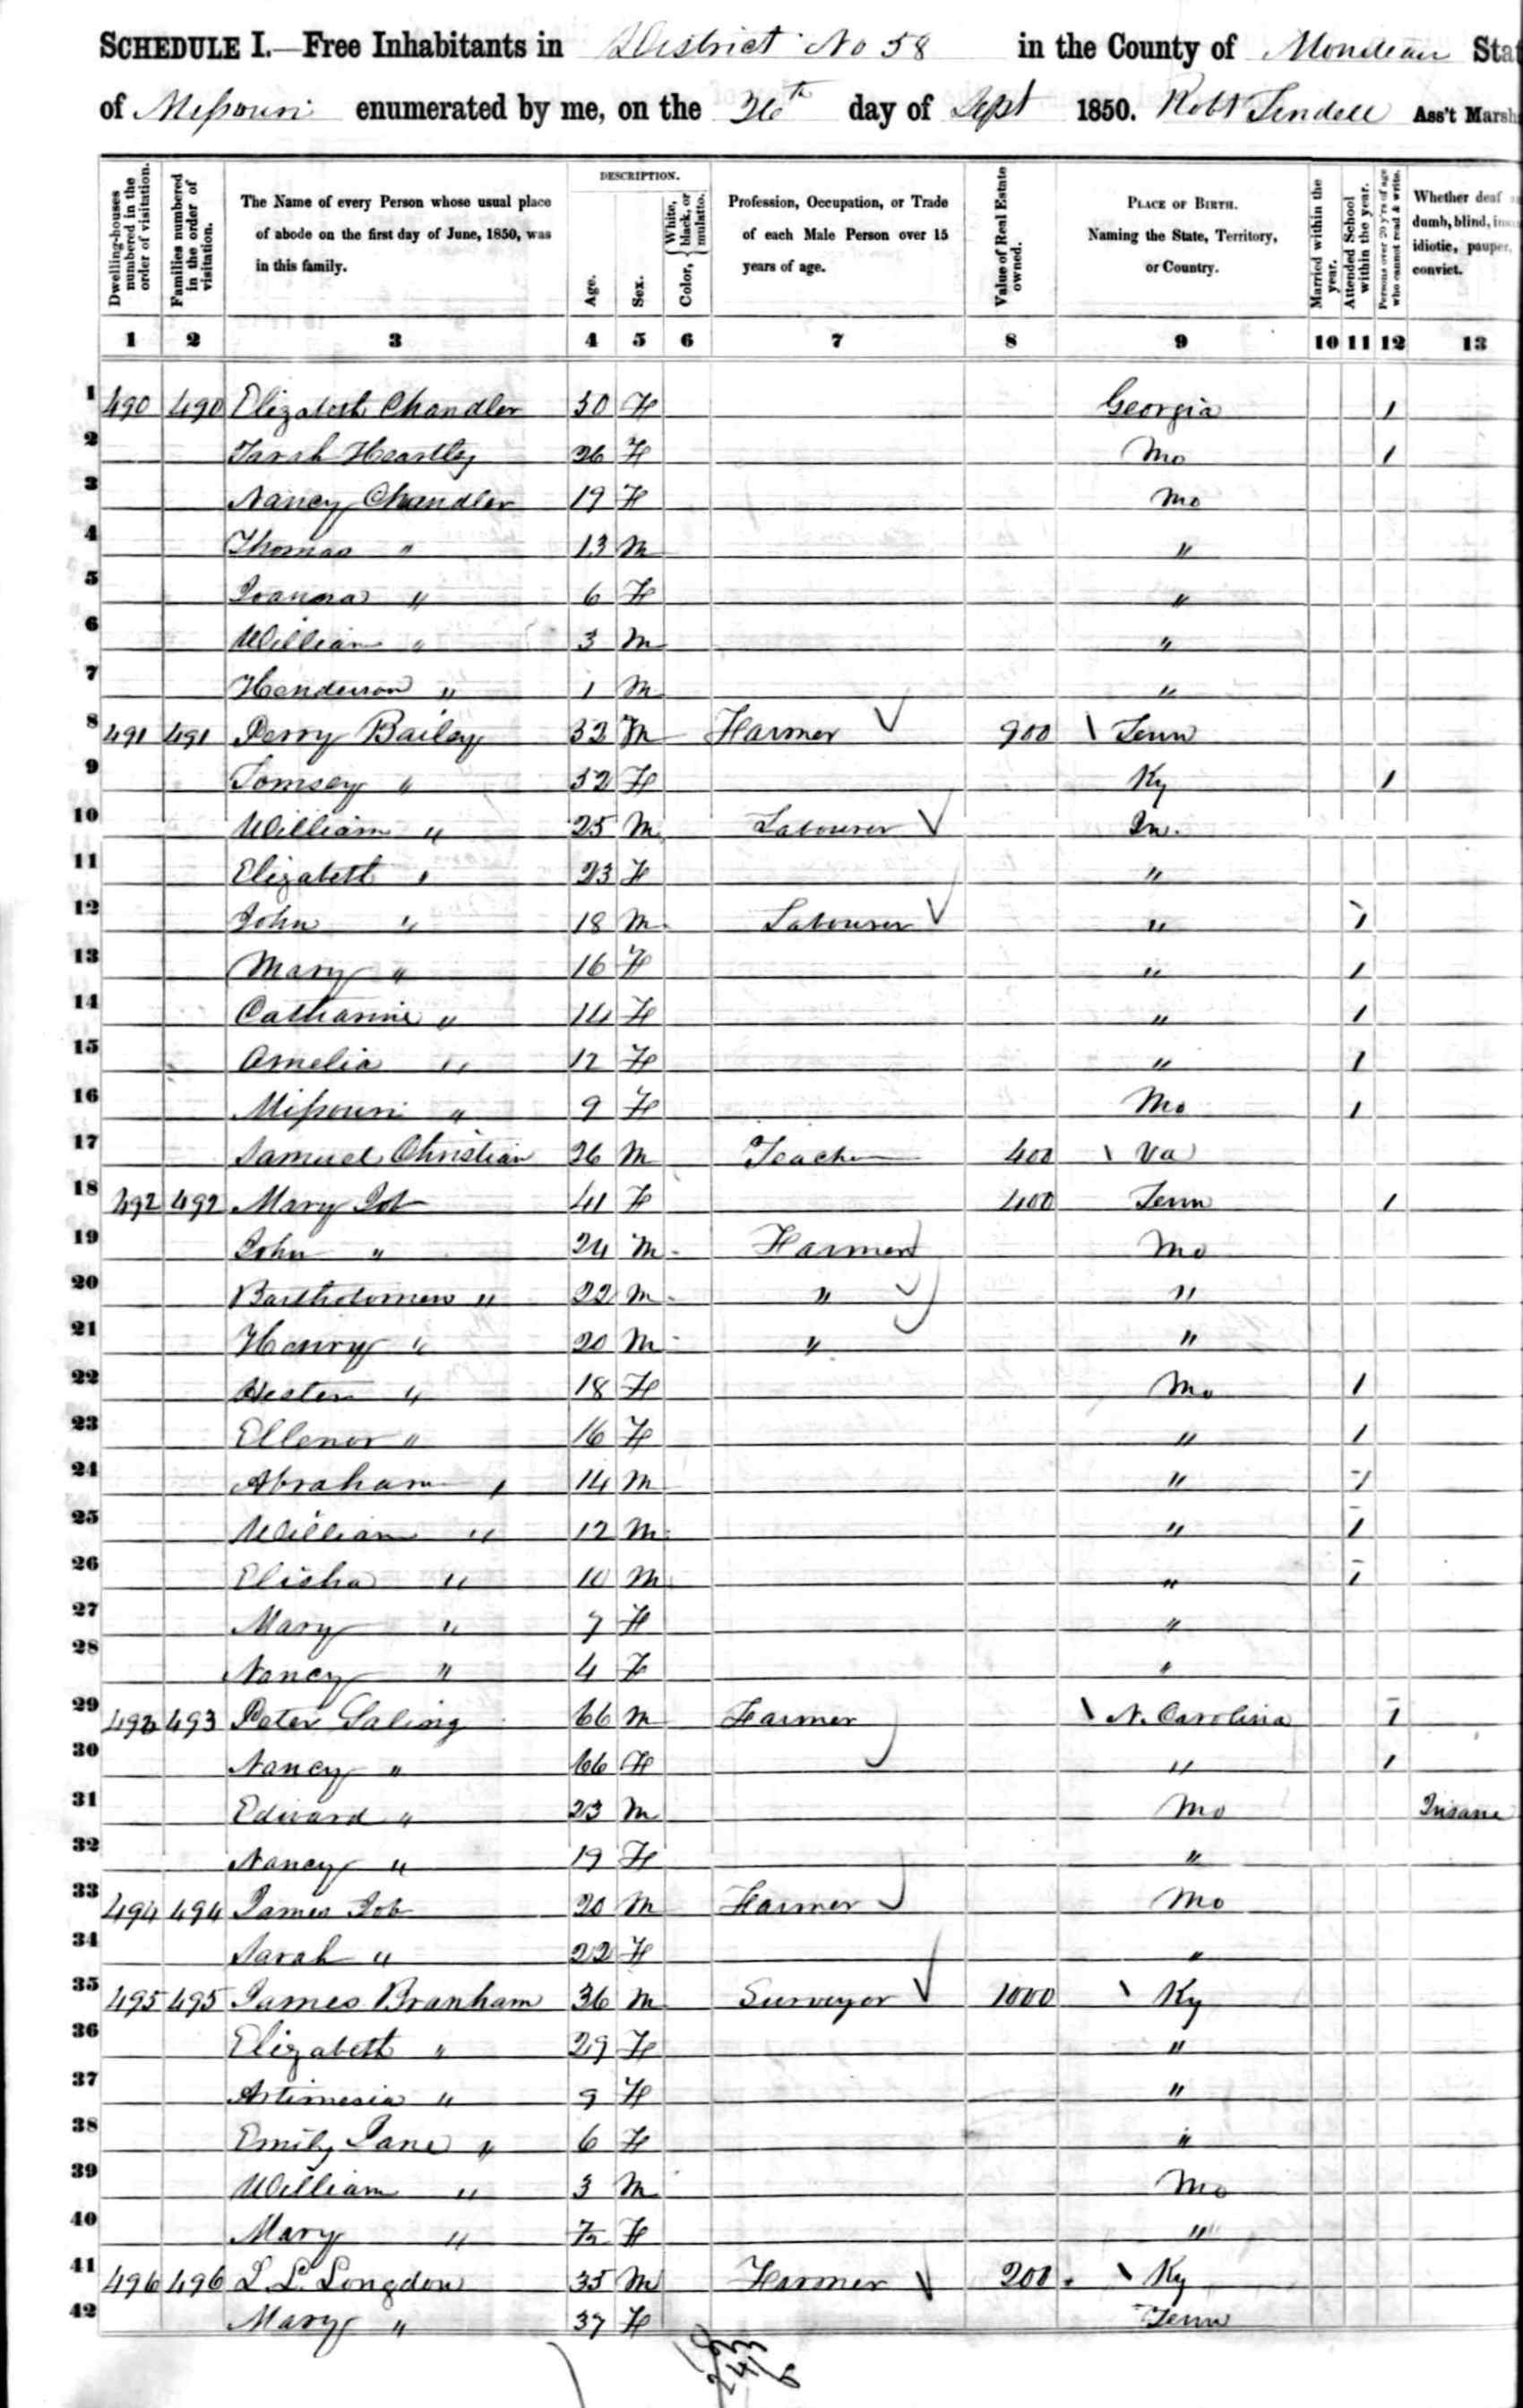 SCHEDULE I.—Free Inhabitants in District No 58 in the County of Moniteau Stat
of Missouri enumerated by me, on the 26th day of Sept 1850. Robt Tindell Ass't Marsh
Dwelling-houses numbered in the order of visitation.
Families numbered in the order of visitation.
The Name of every Person whose usual place of abode on the first day of June, 1850, was in this family.
DESCRIPTION.
Age.
Sex.
Color, { White, black, or mulatto.
Profession, Occupation, or Trade of each Male Person over 15 years of age.
Value of Real Estate owned.
PLACE OF BIRTH. Naming the State, Territory, or Country.
Married within the year.
Attended School within the year.
Persons over 20 y'rs of age who cannot read & write.
Whether deaf dumb, blind, idiotic, pauper, convict.
1 2 3 4 5 6 7 8 9 10 11 12 13
1 490 490 Elizabeth Chandler 30 F Georgia 1
2 Sarah Heartley 26 F Mo 1
3 Nancy Chandler 19 F Mo
4 Thomas " 13 M "
5 Joanna " 6 F "
6 William " 3 M "
7 Henderson " 1 M "
8 491 491 Perry Bailey 33 M Farmer 900 Tenn
9 Tomsey " 32 F Ky 1
10 William " 25 M Labourer In.
11 Elizabeth " 23 F "
12 John " 18 M Labourer " 1
13 Mary " 16 F " 1
14 Catharine " 14 F " 1
15 Amelia " 12 F " 1
16 Missouri " 9 F Mo 1
17 Samuel Christian 26 M Teacher 400 Va
18 492 492 Mary Job 41 F 400 Tenn 1
19 John " 24 M Farmer Mo
20 Bartholomew " 22 M " "
21 Henry " 20 M " "
22 Hester " 18 F Mo 1
23 Ellenor " 16 F " 1
24 Abraham " 14 M " 1
25 William " 12 M " 1
26 Elisha " 10 M " 1
27 Mary " 7 F "
28 Nancy " 4 F "
29 493 493 Peter Saling 66 M Farmer N. Carolina 1
30 Nancy " 66 F " 1
31 Edward " 23 M Mo Insane
32 Nancy " 19 F "
33 494 494 James Job 20 M Farmer Mo
34 Sarah " 22 F "
35 495 495 James Branham 36 M Surveyor 1000 Ky
36 Elizabeth " 29 F "
37 Artimesia " 9 F "
38 Emily Jane " 6 F "
39 William " 3 M Mo
40 Mary " F "
41 496 496 L. L. Longdon 35 M Farmer 200 Ky
42 Mary " 37 F Tenn